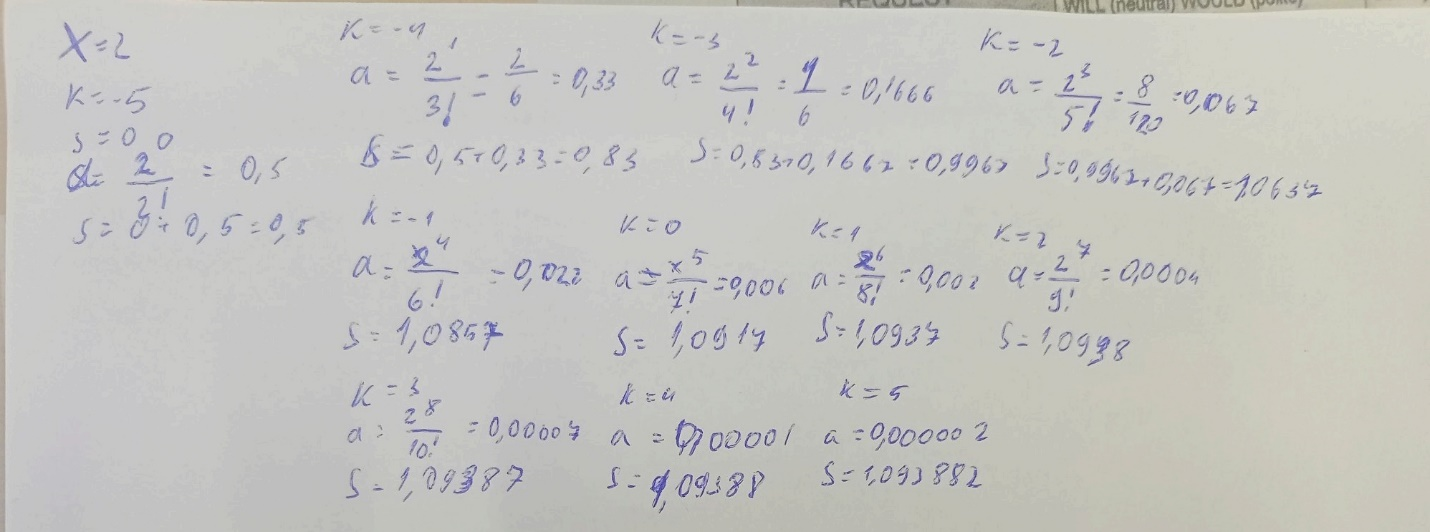 REQUEST
WILL (neutral) WOULD (polite)
x=2
K=-5
S=0
a= 2^0/2! = 0,5
S= 0+0,5=0,5
K=-4
a = 2^1/3! = 2/6 = 0,33
S = 0,5+0,33=0,83
K=-3
a= 2^2/4! = 1/6 = 0,1666
S=0,83+0,1667=0,9967
K=-2
a= 2^3/5! = 8/120 =0,067
S=0,9967+0,067=1,0637
K=-1
a= 2^4/6! =0,022
S=1,0857
K=0
a= x^5/7! =0,006
S= 1,0917
K=1
a= 2^6/8! =0,002
S=1,0937
K=2
a= 2^7/9! =0,0004
S=1,0938
K=3
a= 2^8/10! =0,00007
S=1,09387
K=4
a =0,00001
S=1,09388
K=5
a=0,000002
S=1,093882